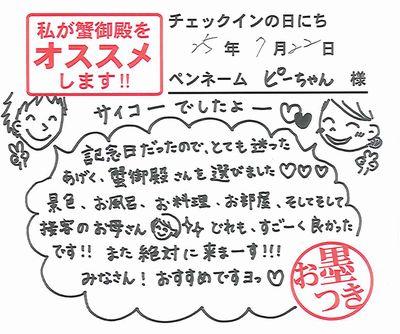 私が蟹御殿を
オススメ
します!!
チェックインの日にち
25年7月22日
ペンネーム ピーちゃん 様
サイコーでしたよー♡♥
記念日だったので、とても迷った
あげく、蟹御殿さんを選びました♡♡♡
景色、お風呂、お料理、お部屋、そしてそして
接客のお母さん どれも、すごーく良かった
です!! また絶対に来まーす!!!
みなさん! おすすめですヨっ♡
お墨つき